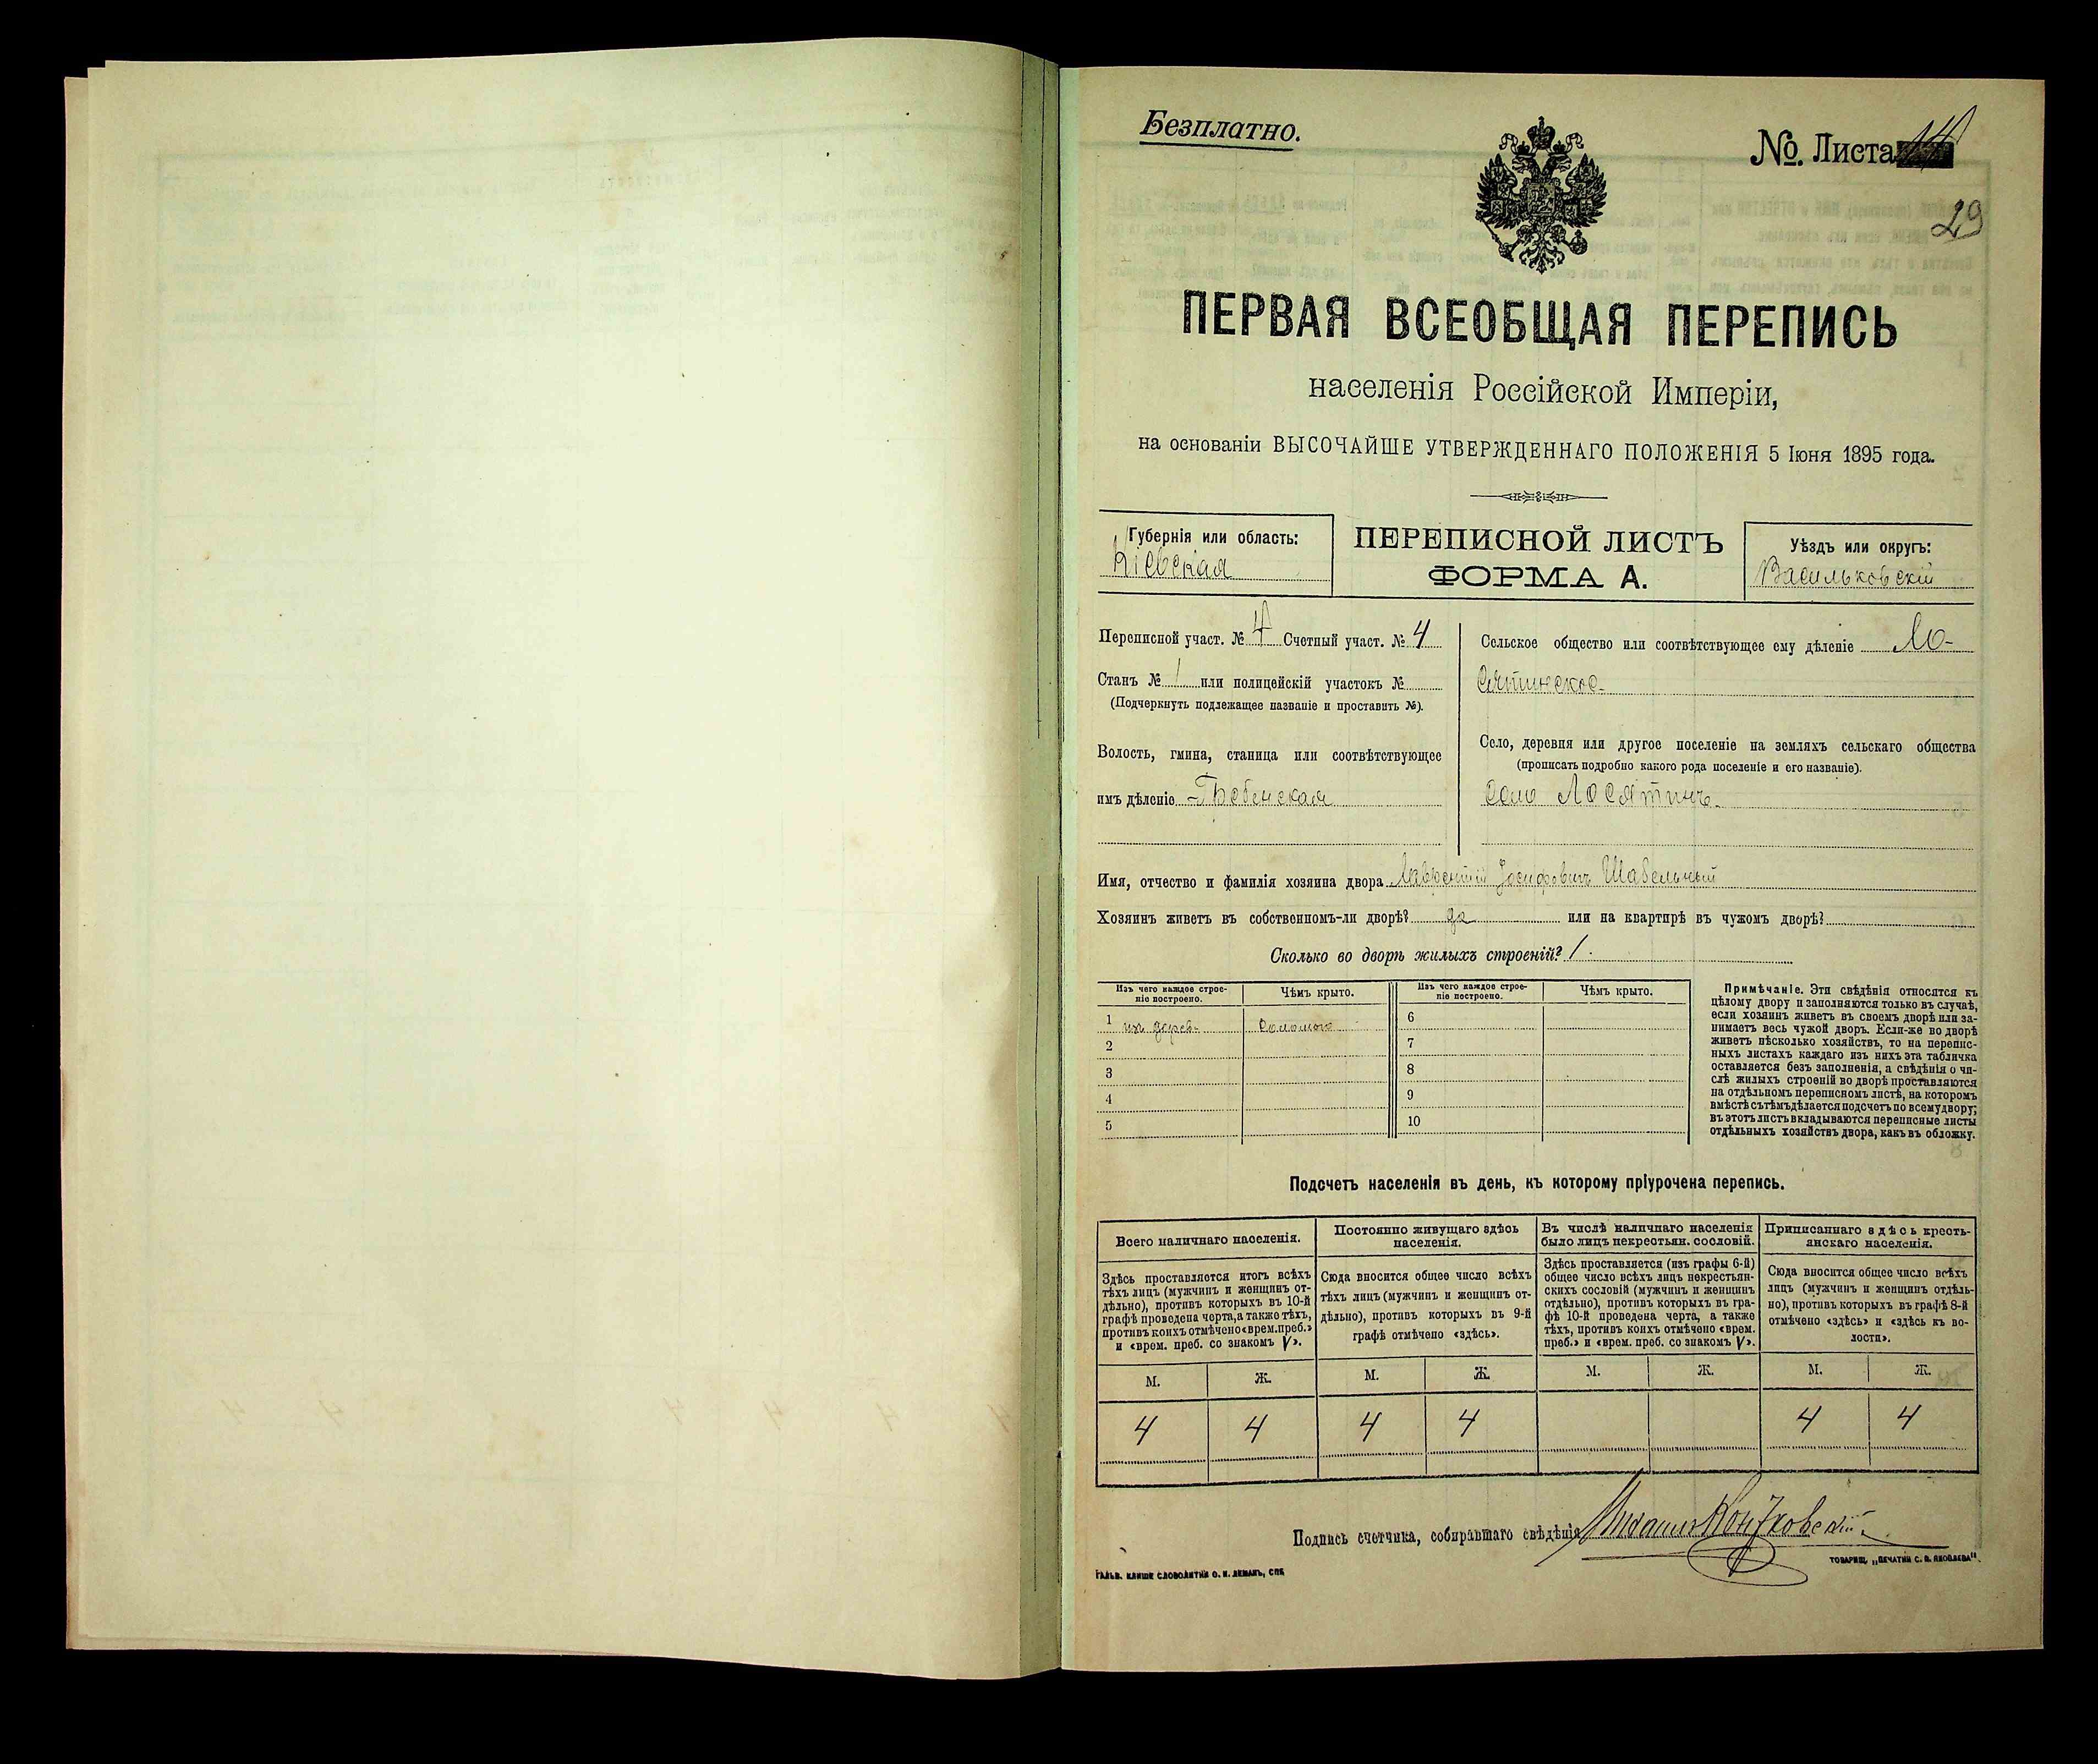 Безплатно.
№. Листа 14
29
ПЕРВАЯ ВСЕОБЩАЯ ПЕРЕПИСЬ
населенія Россійской Имперіи,
на основаніи ВЫСОЧАЙШЕ УТВЕРЖДЕННАГО ПОЛОЖЕНІЯ 5 Іюня 1895 года.
Губернія или область:
Кіевская
ПЕРЕПИСНОЙ ЛИСТЪ
ФОРМА А.
Уѣздъ или округъ:
Васильковскій
Переписной участ. № 4 Счетный участ. № 4
Станъ № 1 или полицейскій участокъ №
(Подчеркнуть подлежащее названіе и проставить №).
Волость, гмина, станица или соотвѣтствующее
имъ дѣленіе Гребенская
Сельское общество или соотвѣтствующее ему дѣленіе Ло-
сятинское
Село, деревня или другое поселеніе на земляхъ сельскаго общества
(прописать подробно какого рода поселеніе и его названіе).
село Лосятинъ
Имя, отчество и фамилія хозяина двора Лаврентій Іосифовичъ Шабельный
Хозяинъ живетъ въ собственномъ-ли дворѣ? да или на квартирѣ въ чужомъ дворѣ?
Сколько во дворѣ жилыхъ строеній? 1.
Изъ чего каждое строе-
ніе построено.
Чѣмъ крыто.
Изъ чего каждое строе-
ніе построено.
Чѣмъ крыто.
1 изъ дерев. соломою
2
3
4
5
6
7
8
9
10
Примѣчаніе. Эти свѣдѣнія относятся къ
цѣлому двору и заполняются только въ случаѣ,
если хозяинъ живетъ въ своемъ дворѣ или за-
нимаетъ весь чужой дворъ. Если-же во дворѣ
живетъ нѣсколько хозяйствъ, то на перепис-
ныхъ листахъ каждаго изъ нихъ эта табличка
оставляется безъ заполненія, а свѣдѣнія о чи-
слѣ жилыхъ строеній во дворѣ проставляются
на отдѣльномъ переписномъ листѣ, на которомъ
вмѣстѣ съ тѣмъ дѣлается подсчетъ по всему двору;
въ этотъ листъ вкладываются переписные листы
отдѣльныхъ хозяйствъ двора, какъ въ обложку.
Подсчетъ населенія въ день, къ которому пріурочена перепись.
Всего наличнаго населенія.
Постоянно живущаго здѣсь
населенія.
Въ числѣ наличнаго населенія
было лицъ некрестьян. сословій.
Приписаннаго здѣсь кресть-
янскаго населенія.
Здѣсь проставляется итогъ всѣхъ
тѣхъ лицъ (мужчинъ и женщинъ от-
дѣльно), противъ которыхъ въ 10-й
графѣ проведена черта, а также тѣхъ,
противъ коихъ отмѣчено «врем. преб.»
и «врем. преб. со знакомъ V».
Сюда вносится общее число всѣхъ
тѣхъ лицъ (мужчинъ и женщинъ от-
дѣльно), противъ которыхъ въ 9-й
графѣ отмѣчено «здѣсь».
Здѣсь проставляется (изъ графы 6-й)
общее число всѣхъ лицъ некрестьян-
скихъ сословій (мужчинъ и женщинъ
отдѣльно), противъ которыхъ въ гра-
фѣ 10-й проведена черта, а также
тѣхъ, противъ коихъ отмѣчено «врем.
преб.» и «врем. преб. со знакомъ V».
Сюда вносится общее число всѣхъ
лицъ (мужчинъ и женщинъ отдѣль-
но), противъ которыхъ въ графѣ 8-й
отмѣчено «здѣсь» и «здѣсь къ во-
лости».
М. Ж. М. Ж. М. Ж. М. Ж.
4 4 4 4 4 4
Подпись счетчика, собиравшаго свѣдѣнія
ГАЛЬВ. КЛИШЕ СЛОВОЛИТНИ О. И. ЛЕМАНЪ, СПБ
ТОВАРИЩ. „ПЕЧАТНИ С. П. ЯКОВЛЕВА".